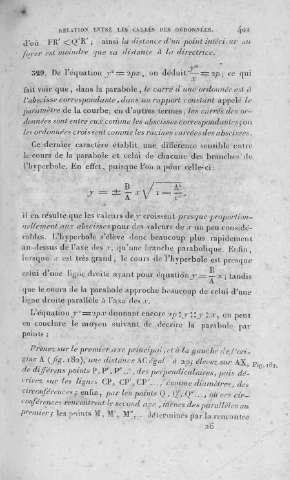 RELATION ENTRE LES CARRÉS DES ORDONNÉES. 401
d'où FR' < Q'R', ainsi la distance d'un point intérieur au
foyer est moindre que sa distance à la directrice.
329. De l'équation y² = 2px, on déduit y²/x = 2p; ce qui
fait voir que, dans la parabole, le carré d'une ordonnée est à
l'abscisse correspondante, dans un rapport constant appelé le
paramètre de la courbe, en d'autres termes, les carrés des or-
données sont entre eux comme les abscisses correspondantes; ou
les ordonnées croissent comme les racines carrées des abscisses.
Ce dernier caractère établit une différence sensible entre
le cours de la parabole et celui de chacune des branches de
l'hyperbole. En effet, puisque l'on a pour celle-ci:
y = ± B/A x √(1 − A²/x²),
il en résulte que les valeurs de y croissent presque proportion-
nellement aux abscisses pour des valeurs de x un peu considé-
rables. L'hyperbole s'élève donc beaucoup plus rapidement
au-dessus de l'axe des x, qu'une branche parabolique. Enfin,
lorsque x est très grand, le cours de l'hyperbole est presque
celui d'une ligne droite ayant pour équation y = B/A x; tandis
que le cours de la parabole approche beaucoup de celui d'une
ligne droite parallèle à l'axe des x.
L'équation y² = 2px donnant encore 2p : y :: y : x, on peut
en conclure le moyen suivant de décrire la parabole par
points:
Prenez sur le premier axe principal, et à la gauche de l'ori-
gine A (fig. 182), une distance AC égal à 2p; élevez sur AX, Fig. 182.
de différens points P, P', P''..., des perpendiculaires, puis dé-
crivez sur les lignes CP, CP', CP''..., comme diamètres, des
circonférences; enfin, par les points Q, Q', Q''..., où ces cir-
conférences rencontrent le second axe, menez des parallèles au
premier; les points M, M', M'',... déterminés par la rencontre
26